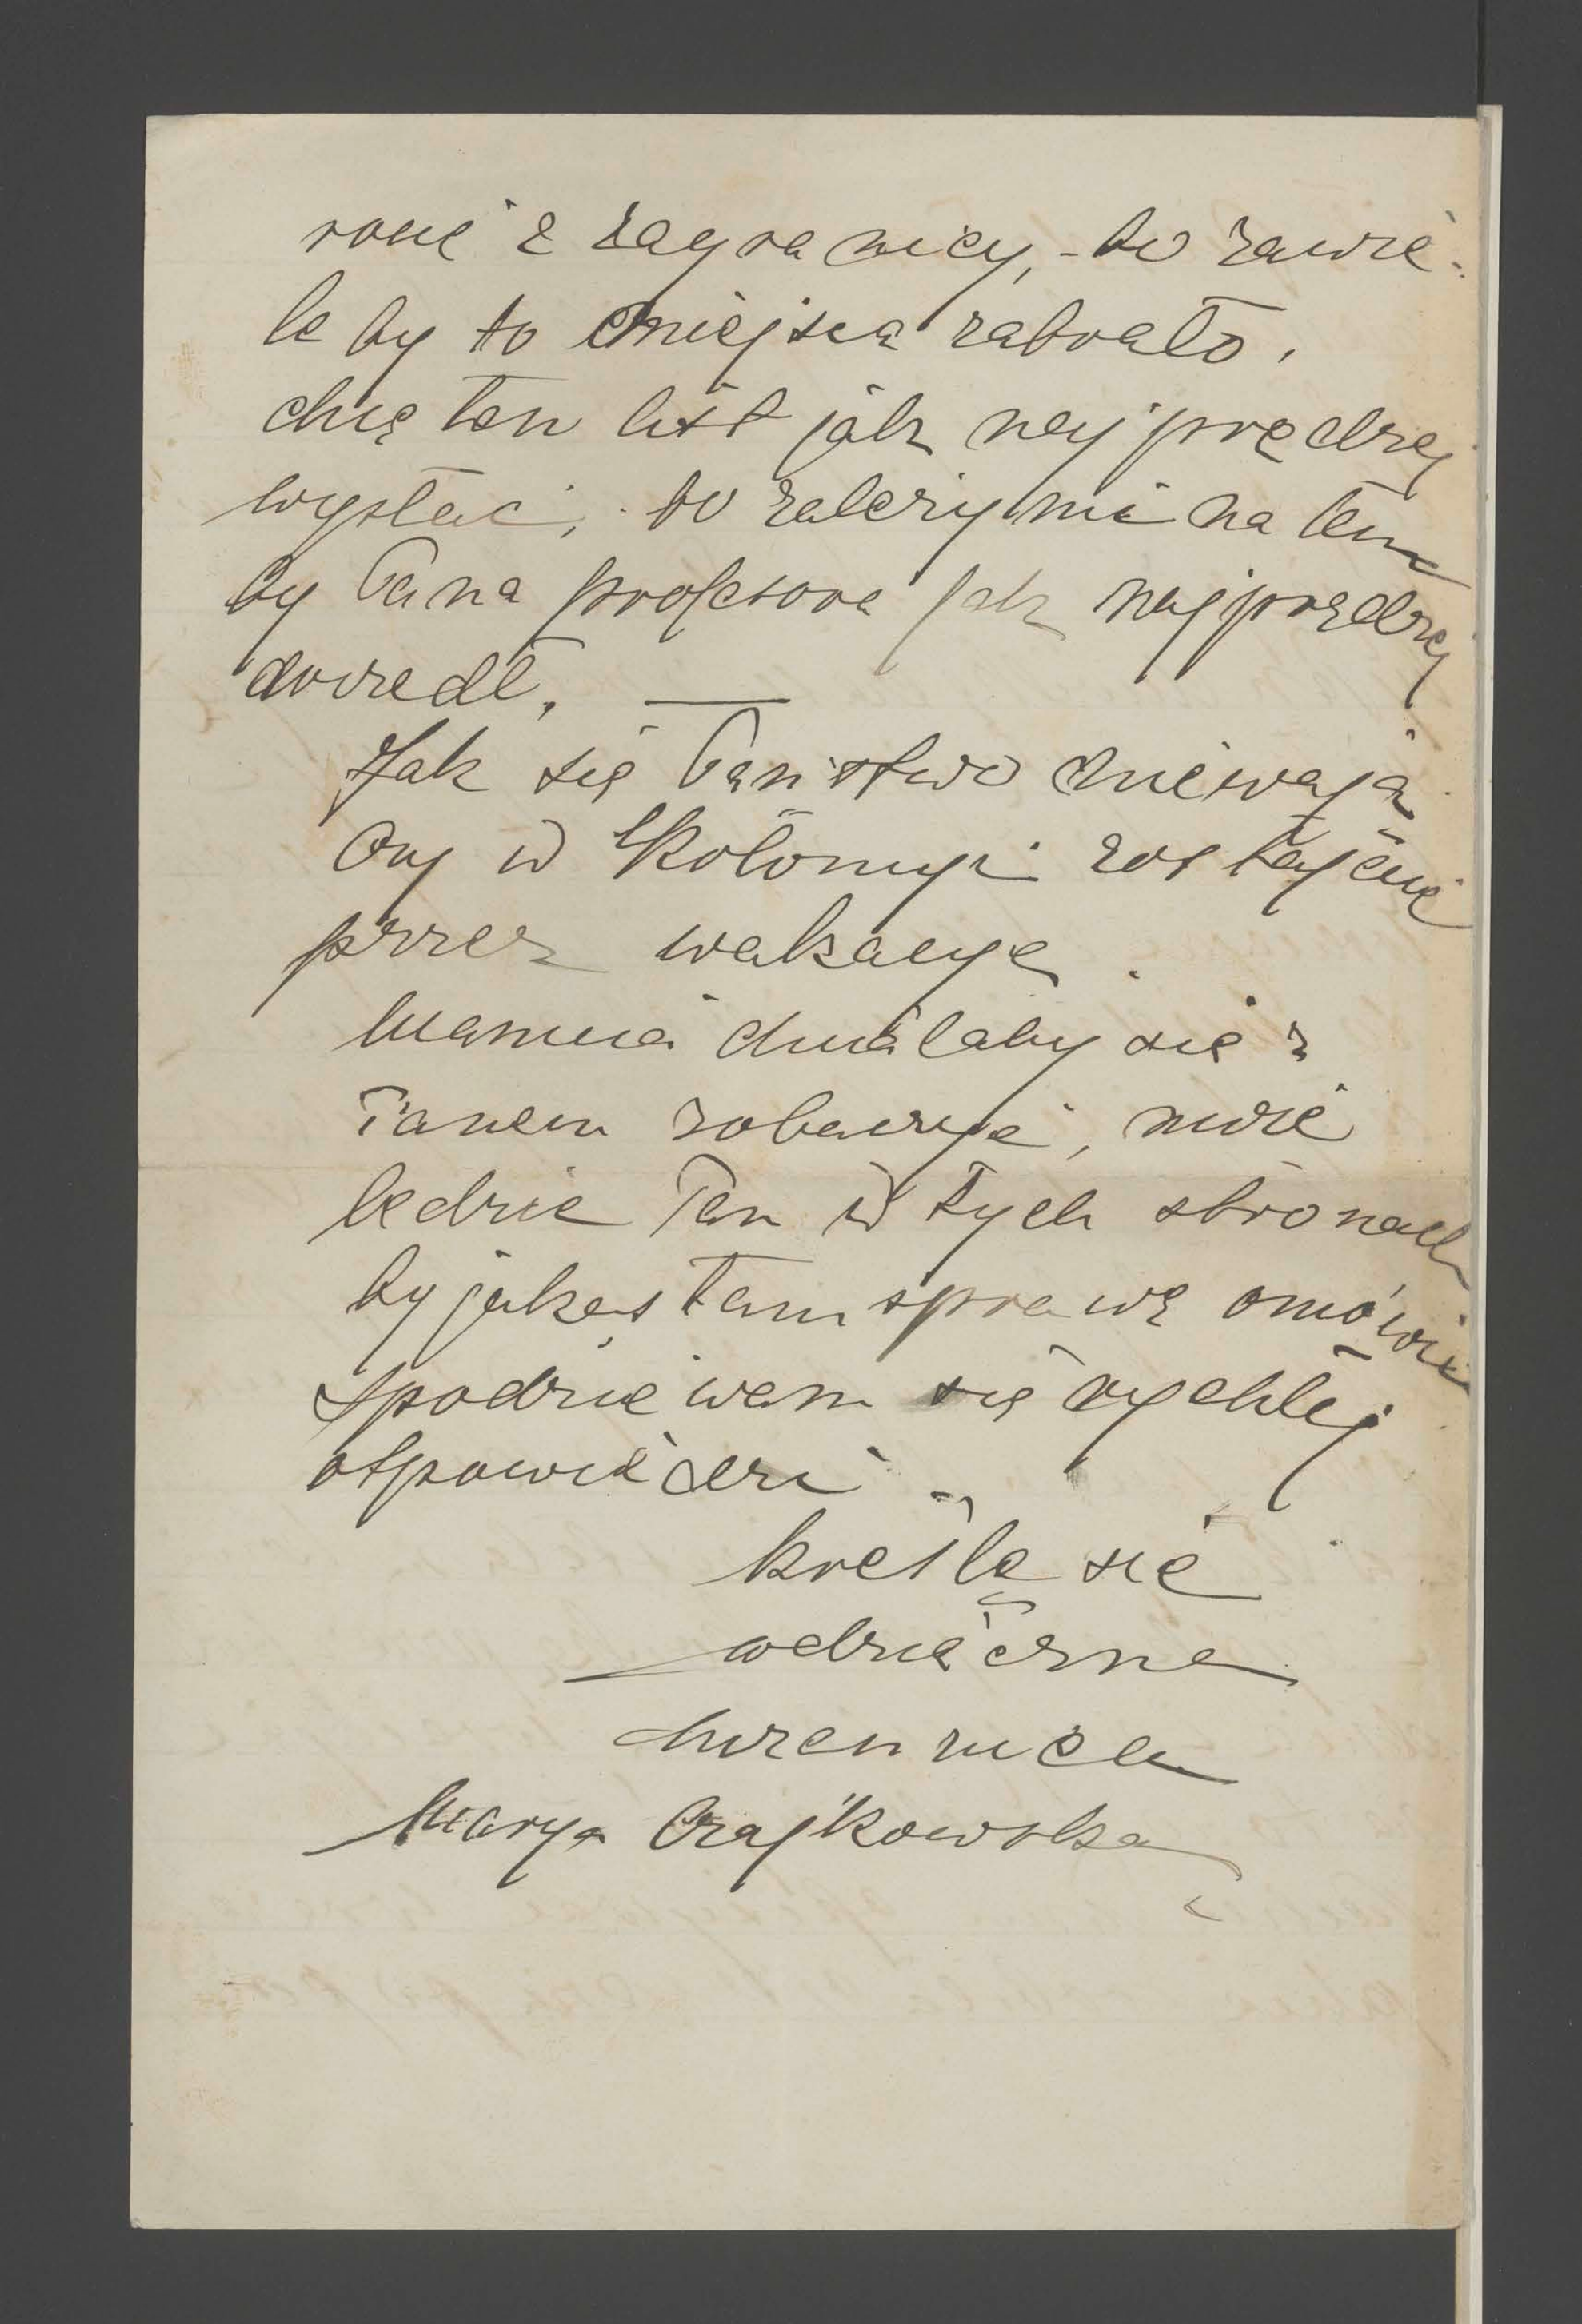 z zagranicy, - bo zawie-
le by to miejsca zabrało,
chcę ten list jak najprędzej
wysłać, bo zależy mi na tem
by Pana profesora jak najprędzej
doszedł. —
Jak się Państwo miewają
Czy w Kołomyi zostajecie
przez wakacye.
Mama chciałaby się z
Panem zobaczyć, może
będzie Pan w tych stronach
by jakąś tam sprawę omówić
Spodziewam się rychłej
otpowiedzi -
kreślę się
wdzięczna
uczennica
Marya Czajkowska